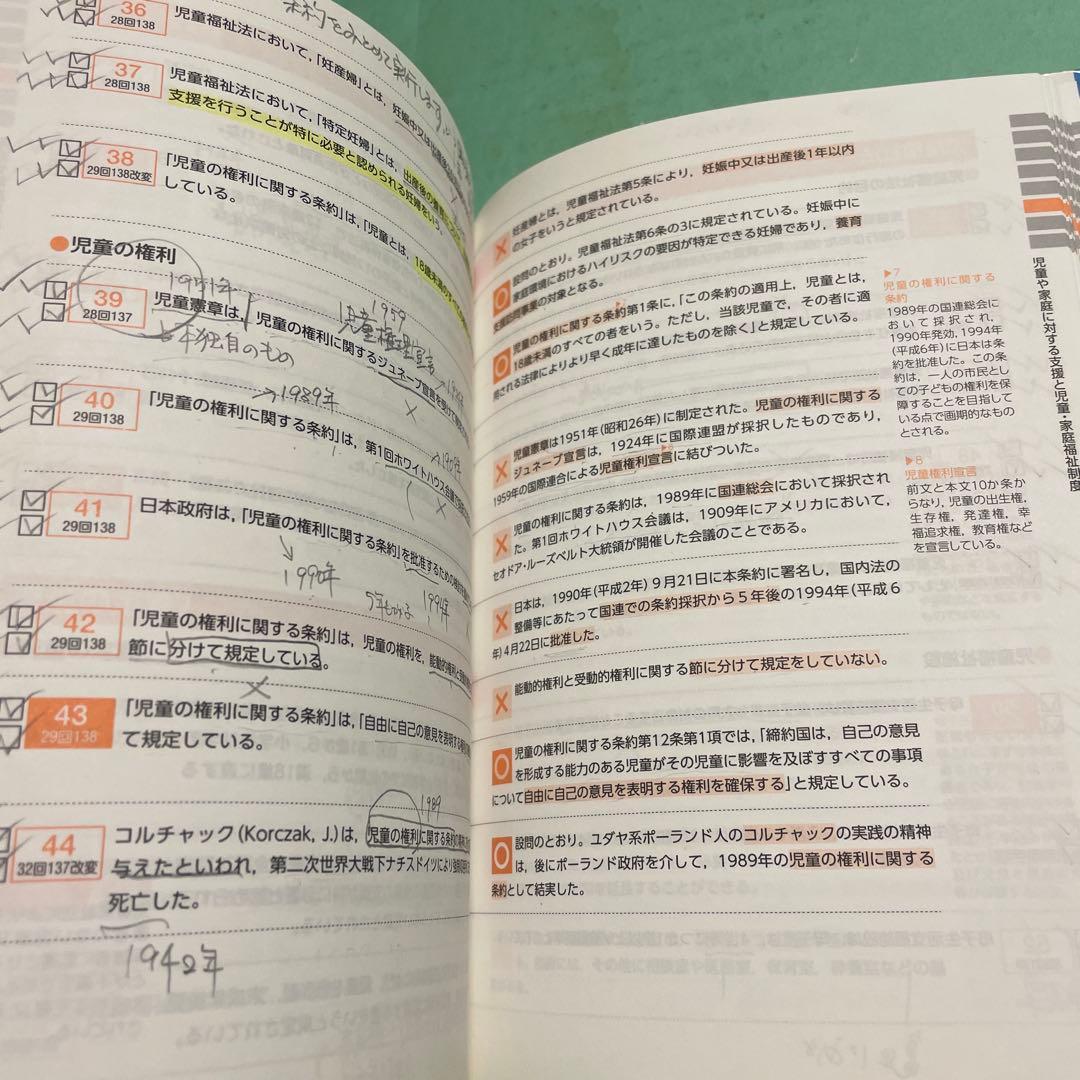 条約をみとめて実行します。
36
28回138
児童福祉法において，「妊産婦」とは，妊娠中又は出産後
37
28回138
児童福祉法において，「特定妊婦」とは，出産後の養育に
支援を行うことが特に必要と認められる妊婦をいう。
38
29回138改変
「児童の権利に関する条約」は，「児童とは，18歳未満のすべて
している。
●児童の権利
1951年
1959
児童権利宣言
39
28回137
児童憲章は，児童の権利に関するジュネーブ宣言を受けて
日本独自のもの
→1989年
×
→1909年
40
29回138
「児童の権利に関する条約」は，第1回ホワイトハウス会議
×
41
29回138
日本政府は，「児童の権利に関する条約」を批准するための
↓
1990年
1994年
×
42
29回138
「児童の権利に関する条約」は，児童の権利を，能動的権利と受動
節に分けて規定している。
×
43
29回138
「児童の権利に関する条約」は，「自由に自己の意見を表明する
て規定している。
1989
44
32回137改変
コルチャック（Korczak, J.）は，児童の権利に関する条約の
与えたといわれ，第二次世界大戦下ナチスドイツにより
死亡した。
1942年
× 妊産婦とは，児童福祉法第5条により，妊娠中又は出産後1年以内
の女子をいうと規定されている。
○ 設問のとおり。児童福祉法第6条の3に規定されている。妊娠中に
家庭環境におけるハイリスクの要因が特定できる妊婦であり，養育
支援訪問事業の対象となる。
○ 児童の権利に関する条約第1条に，「この条約の適用上，児童とは，
18歳未満のすべての者をいう。ただし，当該児童で，その者に適
用される法律によりより早く成年に達したものを除く」と規定している。
× 児童憲章は1951年（昭和26年）に制定された。児童の権利に関する
ジュネーブ宣言は，1924年に国際連盟が採択したものであり，
1959年の国際連合による児童権利宣言に結びついた。
× 児童の権利に関する条約は，1989年に国連総会において採択され
た。第1回ホワイトハウス会議は，1909年にアメリカにおいて，
セオドア・ルーズベルト大統領が開催した会議のことである。
× 日本は，1990年（平成2年）9月21日に本条約に署名し，国内法の
整備等にあたって国連での条約採択から5年後の1994年（平成6
年）4月22日に批准した。
× 能動的権利と受動的権利に関する節に分けて規定をしていない。
○ 児童の権利に関する条約第12条第1項では，「締約国は，自己の意見
を形成する能力のある児童がその児童に影響を及ぼすすべての事項
について自由に自己の意見を表明する権利を確保する」と規定している。
○ 設問のとおり。ユダヤ系ポーランド人のコルチャックの実践の精神
は，後にポーランド政府を介して，1989年の児童の権利に関する
条約として結実した。
▶7
児童の権利に関する
条約
1989年の国連総会に
おいて採択され，
1990年発効，1994年
（平成6年）に日本は条
約を批准した。この条
約は，一人の市民とし
ての子どもの権利を保
障することを目指して
いる点で画期的なもの
とされる。
▶8
児童権利宣言
前文と本文10か条か
らなり，児童の出生権，
生存権，発達権，幸
福追求権，教育権など
を宣言している。
児童や家庭に対する支援と児童・家庭福祉制度